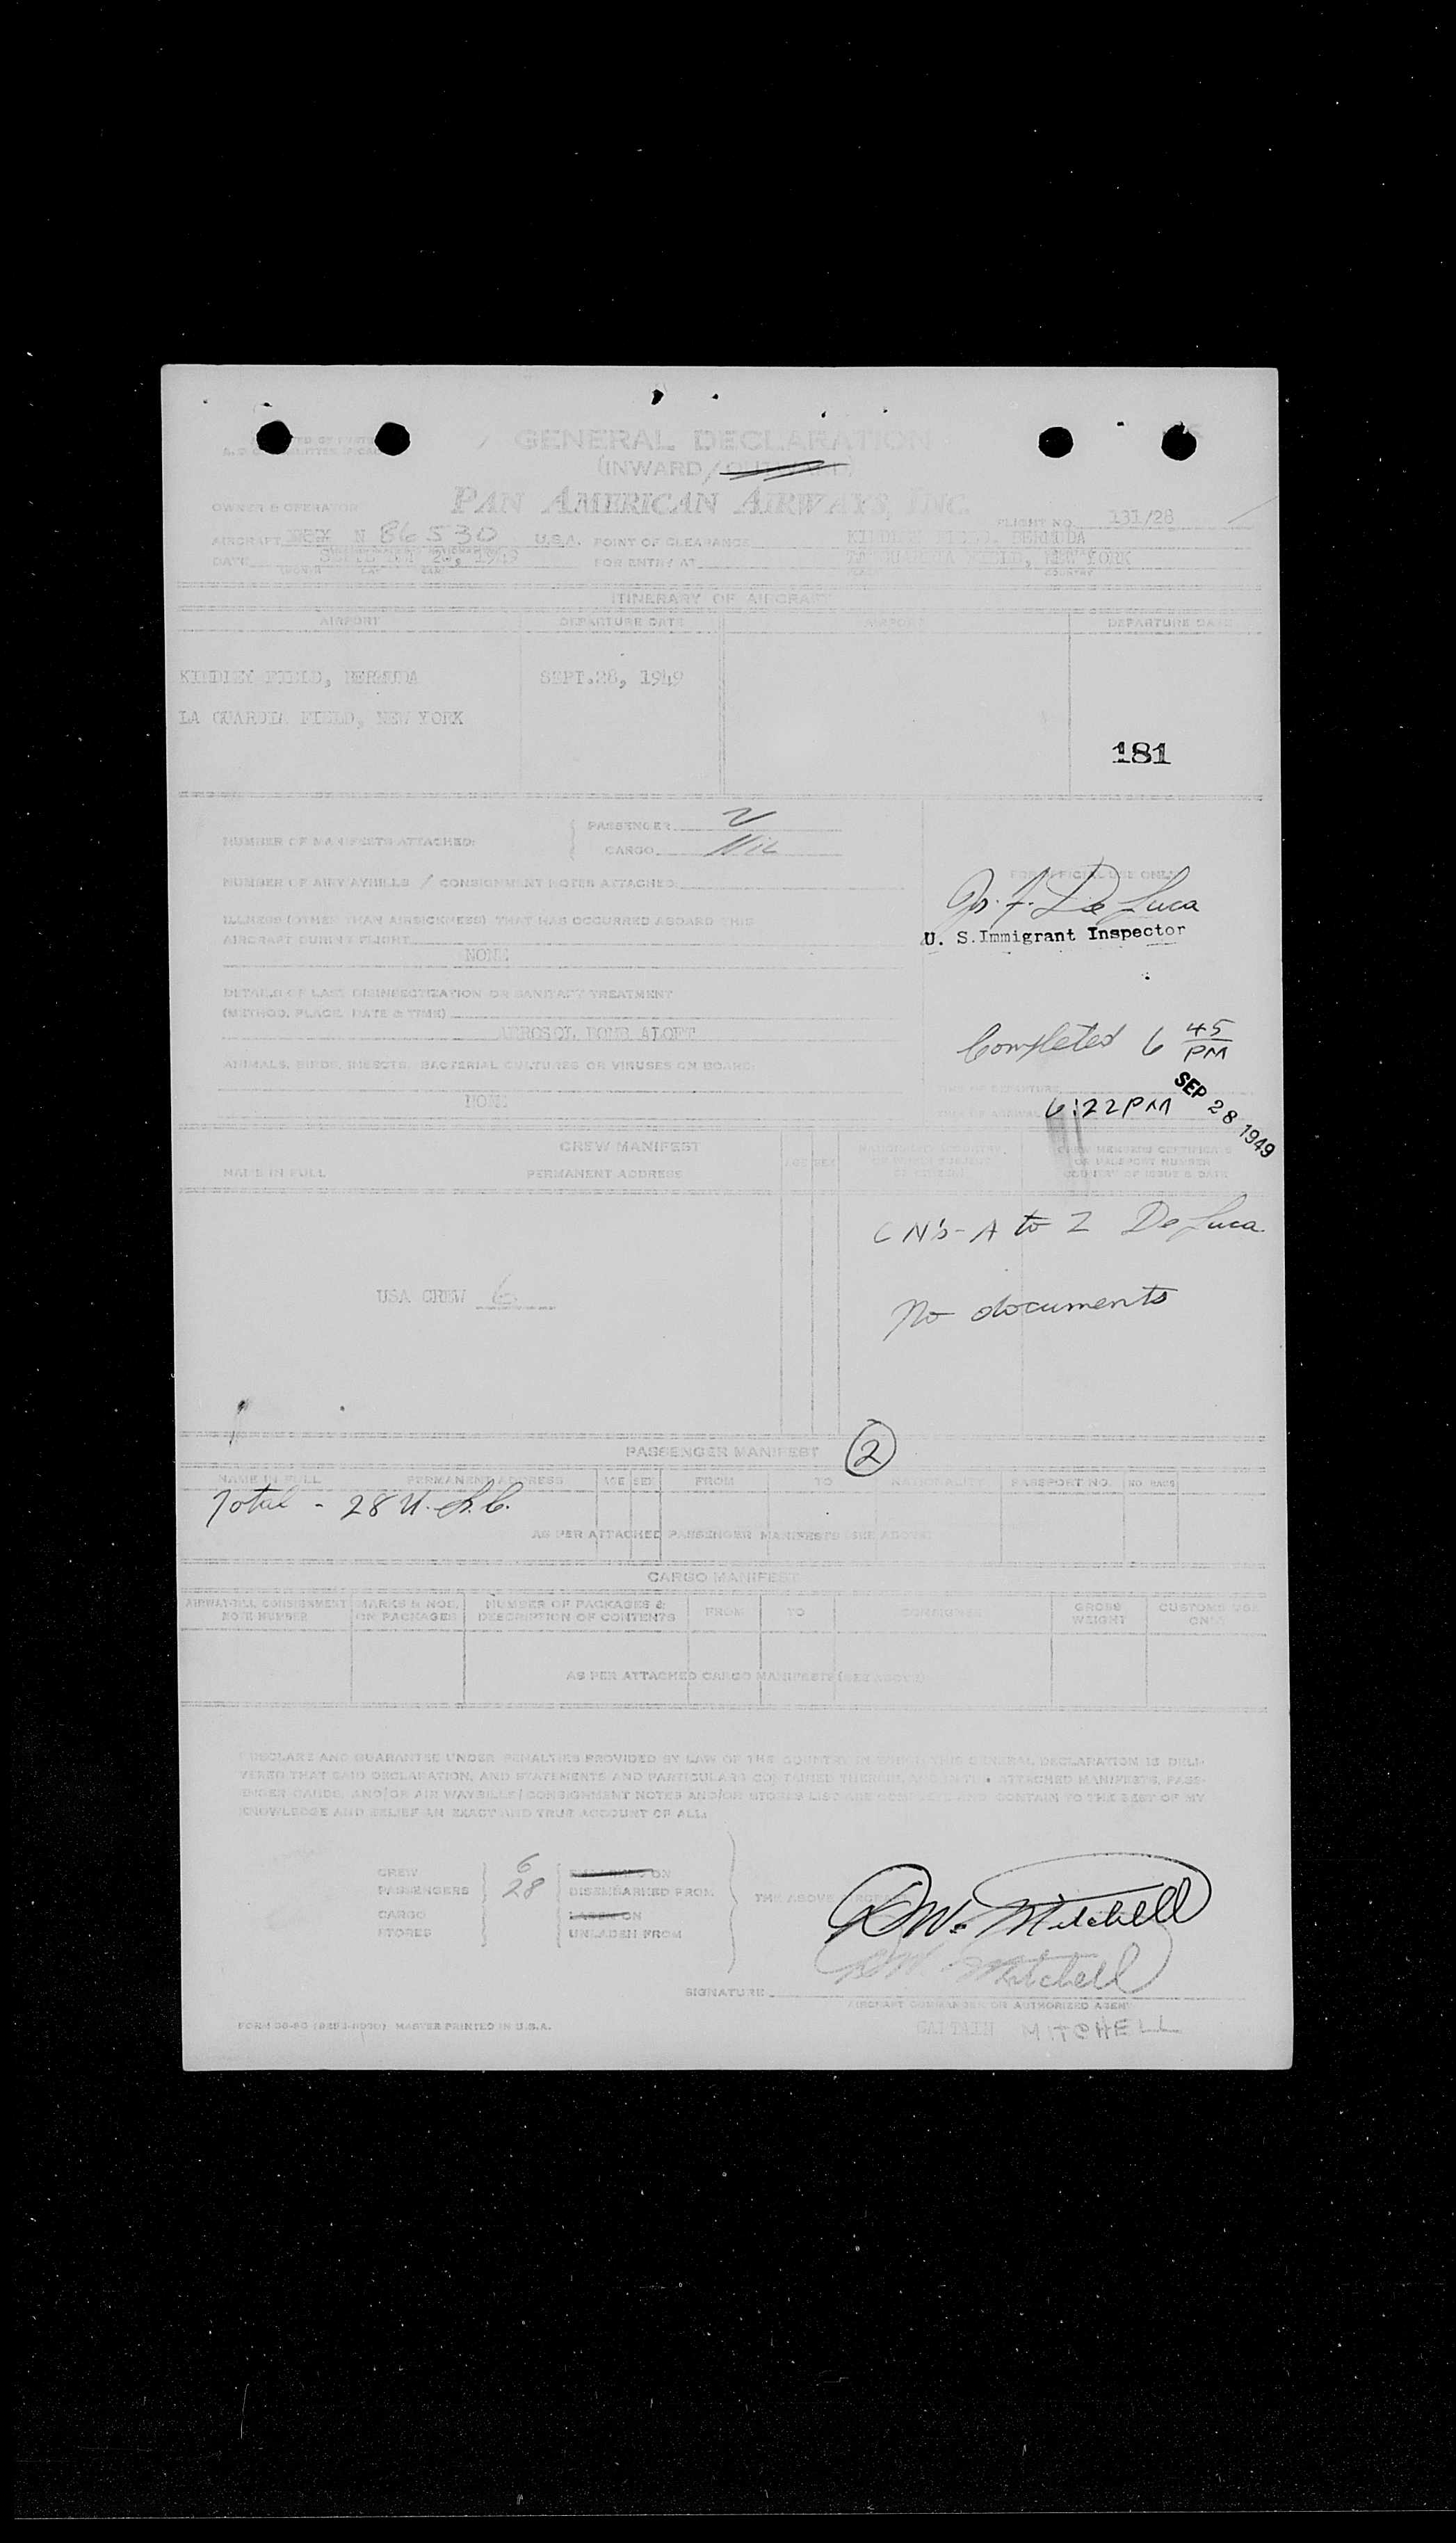 GENERAL DECLARATION
(INWARD/OUTWARD)
PAN AMERICAN AIRWAYS, INC.
OWNER & OPERATOR
FLIGHT NO. 131/28
AIRCRAFT N 86530 U.S.A. POINT OF CLEARANCE KINDLEY FIELD, BERMUDA
DATE 1949 FOR ENTRY AT LA GUARDIA FIELD, NEW YORK
ITINERARY OF AIRCRAFT
AIRPORT DEPARTURE DATE AIRPORT DEPARTURE DATE
KINDLEY FIELD, BERMUDA SEPT.28, 1949
LA GUARDIA FIELD, NEW YORK
181
NUMBER OF MANIFESTS ATTACHED: PASSENGER 2
CARGO Nil
NUMBER OF AIRWAYBILLS / CONSIGNMENT NOTES ATTACHED
FOR OFFICIAL USE ONLY
Jos. F. De Luca
U. S. Immigrant Inspector
ILLNESS (OTHER THAN AIRSICKNESS) THAT HAS OCCURRED ABOARD THIS
AIRCRAFT DURING FLIGHT
NONE
DETAILS OF LAST DISINSECTIZATION OR SANITARY TREATMENT
(METHOD, PLACE, DATE & TIME)
AEROSOL BOMB ALOFT
Completed 6 45 PM
ANIMALS, BIRDS, INSECTS, BACTERIAL CULTURES OR VIRUSES ON BOARD:
NONE
TIME OF DEPARTURE
TIME OF ARRIVAL 6:22 PM SEP 28 1949
CREW MANIFEST
NAME IN FULL PERMANENT ADDRESS AGE SEX
CREW MEMBERS CERTIFICATE
OR PASSPORT NUMBER
COUNTRY OF ISSUE & DATE
C N's - A to Z De Luca
USA CREW 6
No documents
PASSENGER MANIFEST 2
NAME IN FULL PERMANENT ADDRESS AGE SEX FROM TO NATIONALITY PASSPORT NO. NO. BAGS
Total - 28 U.S.C.
AS PER ATTACHED PASSENGER MANIFESTS (SEE ABOVE)
CARGO MANIFEST
AIRWAY-BILL CONSIGNMENT NOTE NUMBER MARKS & NOS. ON PACKAGES NUMBER OF PACKAGES & DESCRIPTION OF CONTENTS FROM TO CONSIGNEE GROSS WEIGHT CUSTOMS USE ONLY
AS PER ATTACHED CARGO MANIFESTS (SEE ABOVE)
I DECLARE AND GUARANTEE UNDER PENALTIES PROVIDED BY LAW OF THE COUNTRY IN WHICH THIS GENERAL DECLARATION IS DELI-
VERED THAT SAID DECLARATION, AND STATEMENTS AND PARTICULARS CONTAINED THEREIN, AND IN THE ATTACHED MANIFESTS, PASS-
ENGER CARDS, AND/OR AIR WAYBILLS/CONSIGNMENT NOTES AND/OR STORES LIST ARE COMPLETE AND CONTAIN TO THE BEST OF MY
KNOWLEDGE AND BELIEF AN EXACT AND TRUE ACCOUNT OF ALL:
CREW 6 EMBARKING ON
PASSENGERS 28 DISEMBARKED FROM THE ABOVE AIRCRAFT
CARGO LADEN ON
STORES UNLADEN FROM
D.W. Mitchell
D.W. Mitchell
SIGNATURE
AIRCRAFT COMMANDER OR AUTHORIZED AGENT
MASTER PRINTED IN U.S.A.
CAPTAIN MITCHELL